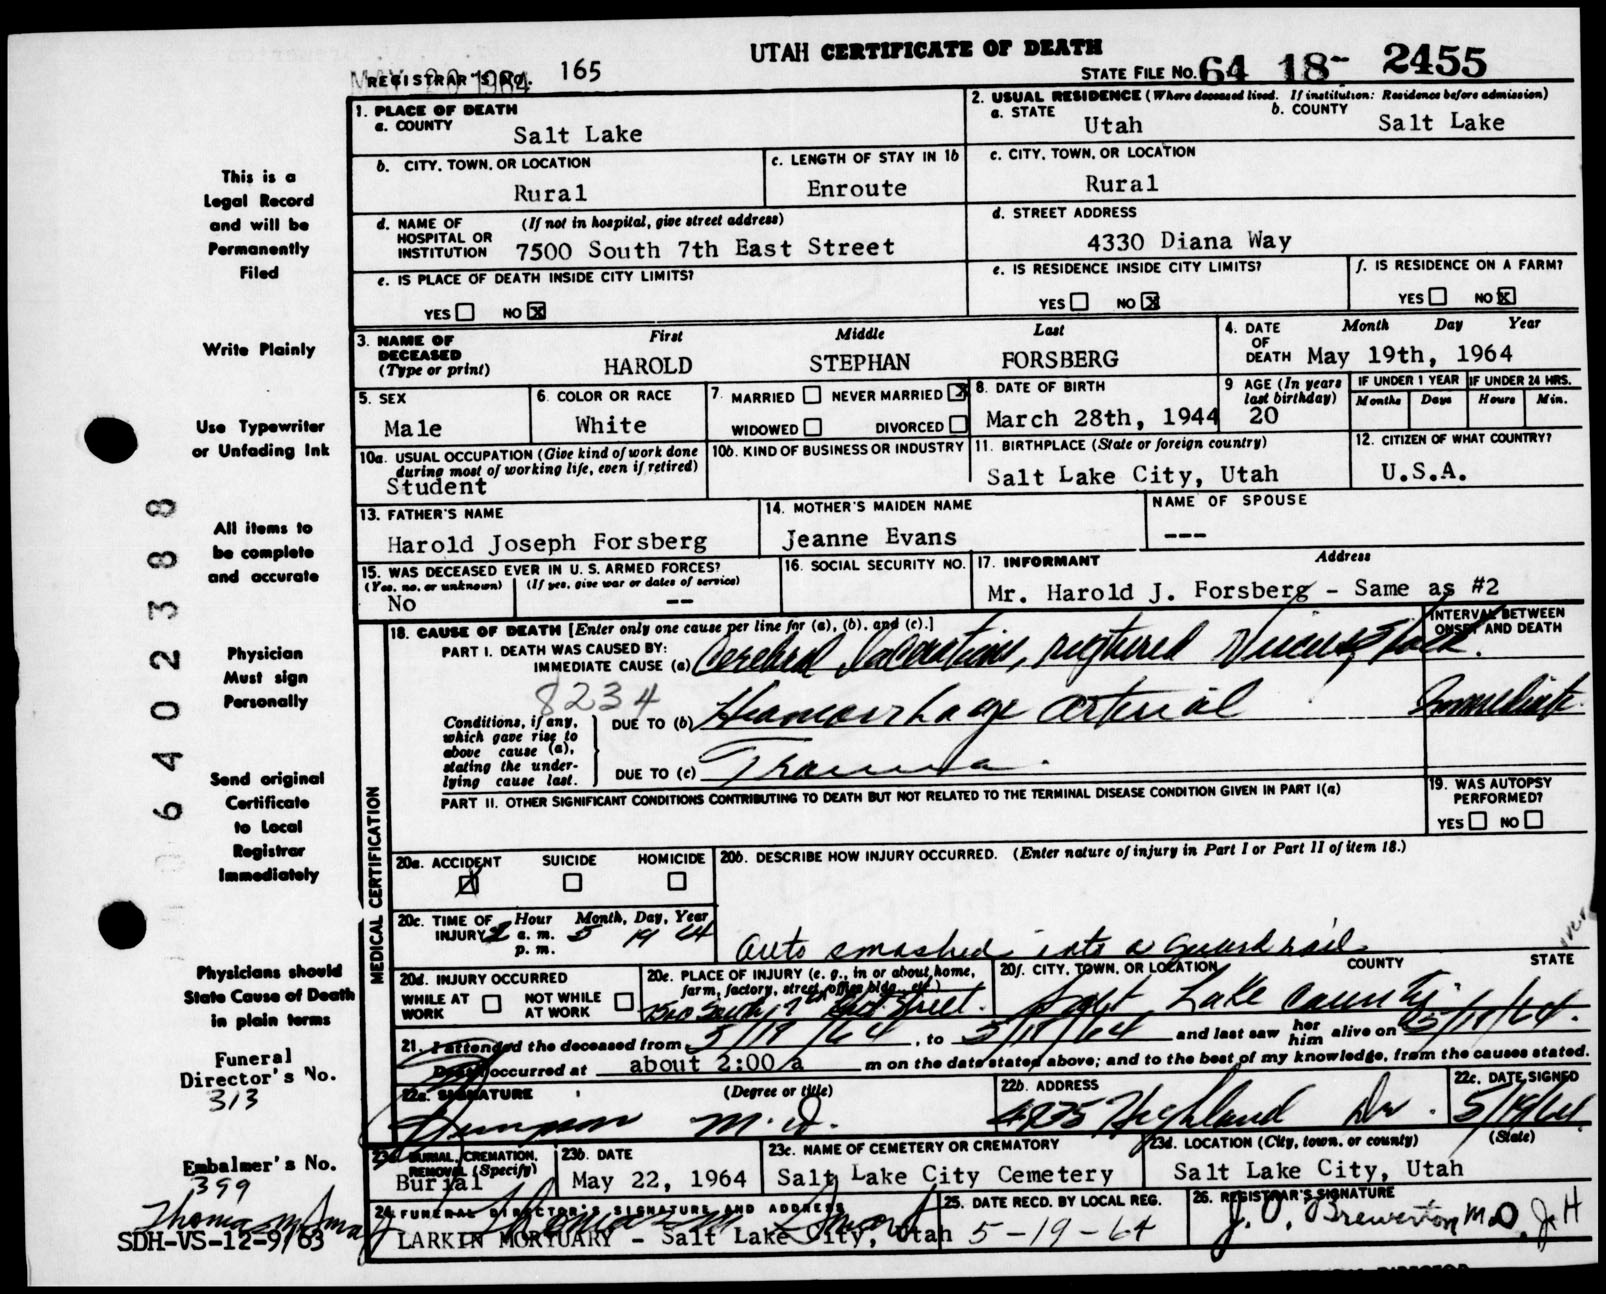 UTAH CERTIFICATE OF DEATH
MAY 20 1964
REGISTRAR'S NO. 165
STATE FILE NO. 64 18- 2455
1. PLACE OF DEATH
a. COUNTY
Salt Lake
2. USUAL RESIDENCE (Where deceased lived. If institution: Residence before admission)
a. STATE
Utah
b. COUNTY
Salt Lake
b. CITY, TOWN, OR LOCATION
Rural
c. LENGTH OF STAY IN 1b
Enroute
c. CITY, TOWN, OR LOCATION
Rural
d. NAME OF HOSPITAL OR INSTITUTION
(If not in hospital, give street address)
7500 South 7th East Street
d. STREET ADDRESS
4330 Diana Way
e. IS PLACE OF DEATH INSIDE CITY LIMITS?
YES NO X
e. IS RESIDENCE INSIDE CITY LIMITS?
YES NO X
f. IS RESIDENCE ON A FARM?
YES NO X
3. NAME OF DECEASED (Type or print)
First Middle Last
HAROLD STEPHAN FORSBERG
4. DATE OF DEATH
Month Day Year
May 19th, 1964
5. SEX
Male
6. COLOR OR RACE
White
7. MARRIED NEVER MARRIED X
WIDOWED DIVORCED
8. DATE OF BIRTH
March 28th, 1944
9 AGE (In years last birthday)
20
IF UNDER 1 YEAR
Months Days
IF UNDER 24 HRS.
Hours Min.
10a. USUAL OCCUPATION (Give kind of work done
during most of working life, even if retired)
Student
10b. KIND OF BUSINESS OR INDUSTRY
11. BIRTHPLACE (State or foreign country)
Salt Lake City, Utah
12. CITIZEN OF WHAT COUNTRY?
U.S.A.
13. FATHER'S NAME
Harold Joseph Forsberg
14. MOTHER'S MAIDEN NAME
Jeanne Evans
NAME OF SPOUSE
---
15. WAS DECEASED EVER IN U. S. ARMED FORCES?
(Yes, no, or unknown) (If yes, give war or dates of service)
No --
16. SOCIAL SECURITY NO.
17. INFORMANT Address
Mr. Harold J. Forsberg - Same as #2
MEDICAL CERTIFICATION
18. CAUSE OF DEATH [Enter only one cause per line for (a), (b), and (c).]
INTERVAL BETWEEN
ONSET AND DEATH
PART I. DEATH WAS CAUSED BY:
IMMEDIATE CAUSE (a) Cerebral lacerations, ruptured
8234
Conditions, if any,
which gave rise to
above cause (a),
stating the under-
lying cause last.
DUE TO (b) Heamorrhage arterial
Immediate
DUE TO (c) Trauma.
PART II. OTHER SIGNIFICANT CONDITIONS CONTRIBUTING TO DEATH BUT NOT RELATED TO THE TERMINAL DISEASE CONDITION GIVEN IN PART I(a)
19. WAS AUTOPSY PERFORMED?
YES NO
20a. ACCIDENT SUICIDE HOMICIDE
X
20b. DESCRIBE HOW INJURY OCCURRED. (Enter nature of injury in Part I or Part II of item 18.)
auto smashed into a guard rail
over
20c. TIME OF INJURY
Hour Month, Day, Year
2 a. m. 5 19 64
p. m.
20d. INJURY OCCURRED
WHILE AT WORK
NOT WHILE AT WORK
20e. PLACE OF INJURY (e. g., in or about home,
farm, factory, street, office bldg., etc.)
7500 South 7th East Street.
20f. CITY, TOWN, OR LOCATION COUNTY STATE
Salt Lake County.
21. I attended the deceased from 5/19/64, to 5/19/64 and last saw her him alive on 5/19/64.
Death occurred at about 2:00 a m on the date stated above; and to the best of my knowledge, from the causes stated.
22a. SIGNATURE (Degree or title)
M.D.
22b. ADDRESS
4835 Highland Dr.
22c. DATE SIGNED
5/19/64
23a. BURIAL, CREMATION, REMOVAL (Specify)
Burial
23b. DATE
May 22, 1964
23c. NAME OF CEMETERY OR CREMATORY
Salt Lake City Cemetery
23d. LOCATION (City, town, or county) (State)
Salt Lake City, Utah
24. FUNERAL DIRECTOR'S SIGNATURE AND ADDRESS
LARKIN MORTUARY - Salt Lake City, Utah
25. DATE RECD. BY LOCAL REG.
5-19-64
26. REGISTRAR'S SIGNATURE
J. O. Brewerton M.D. JH
This is a
Legal Record
and will be
Permanently
Filed
Write Plainly
Use Typewriter
or Unfading Ink
All items to
be complete
and accurate
Physician
Must sign
Personally
Send original
Certificate
to Local
Registrar
Immediately
Physicians should
State Cause of Death
in plain terms
Funeral
Director's No.
313
Embalmer's No.
399
Thomas M
SDH-VS-12-9/63
06402388